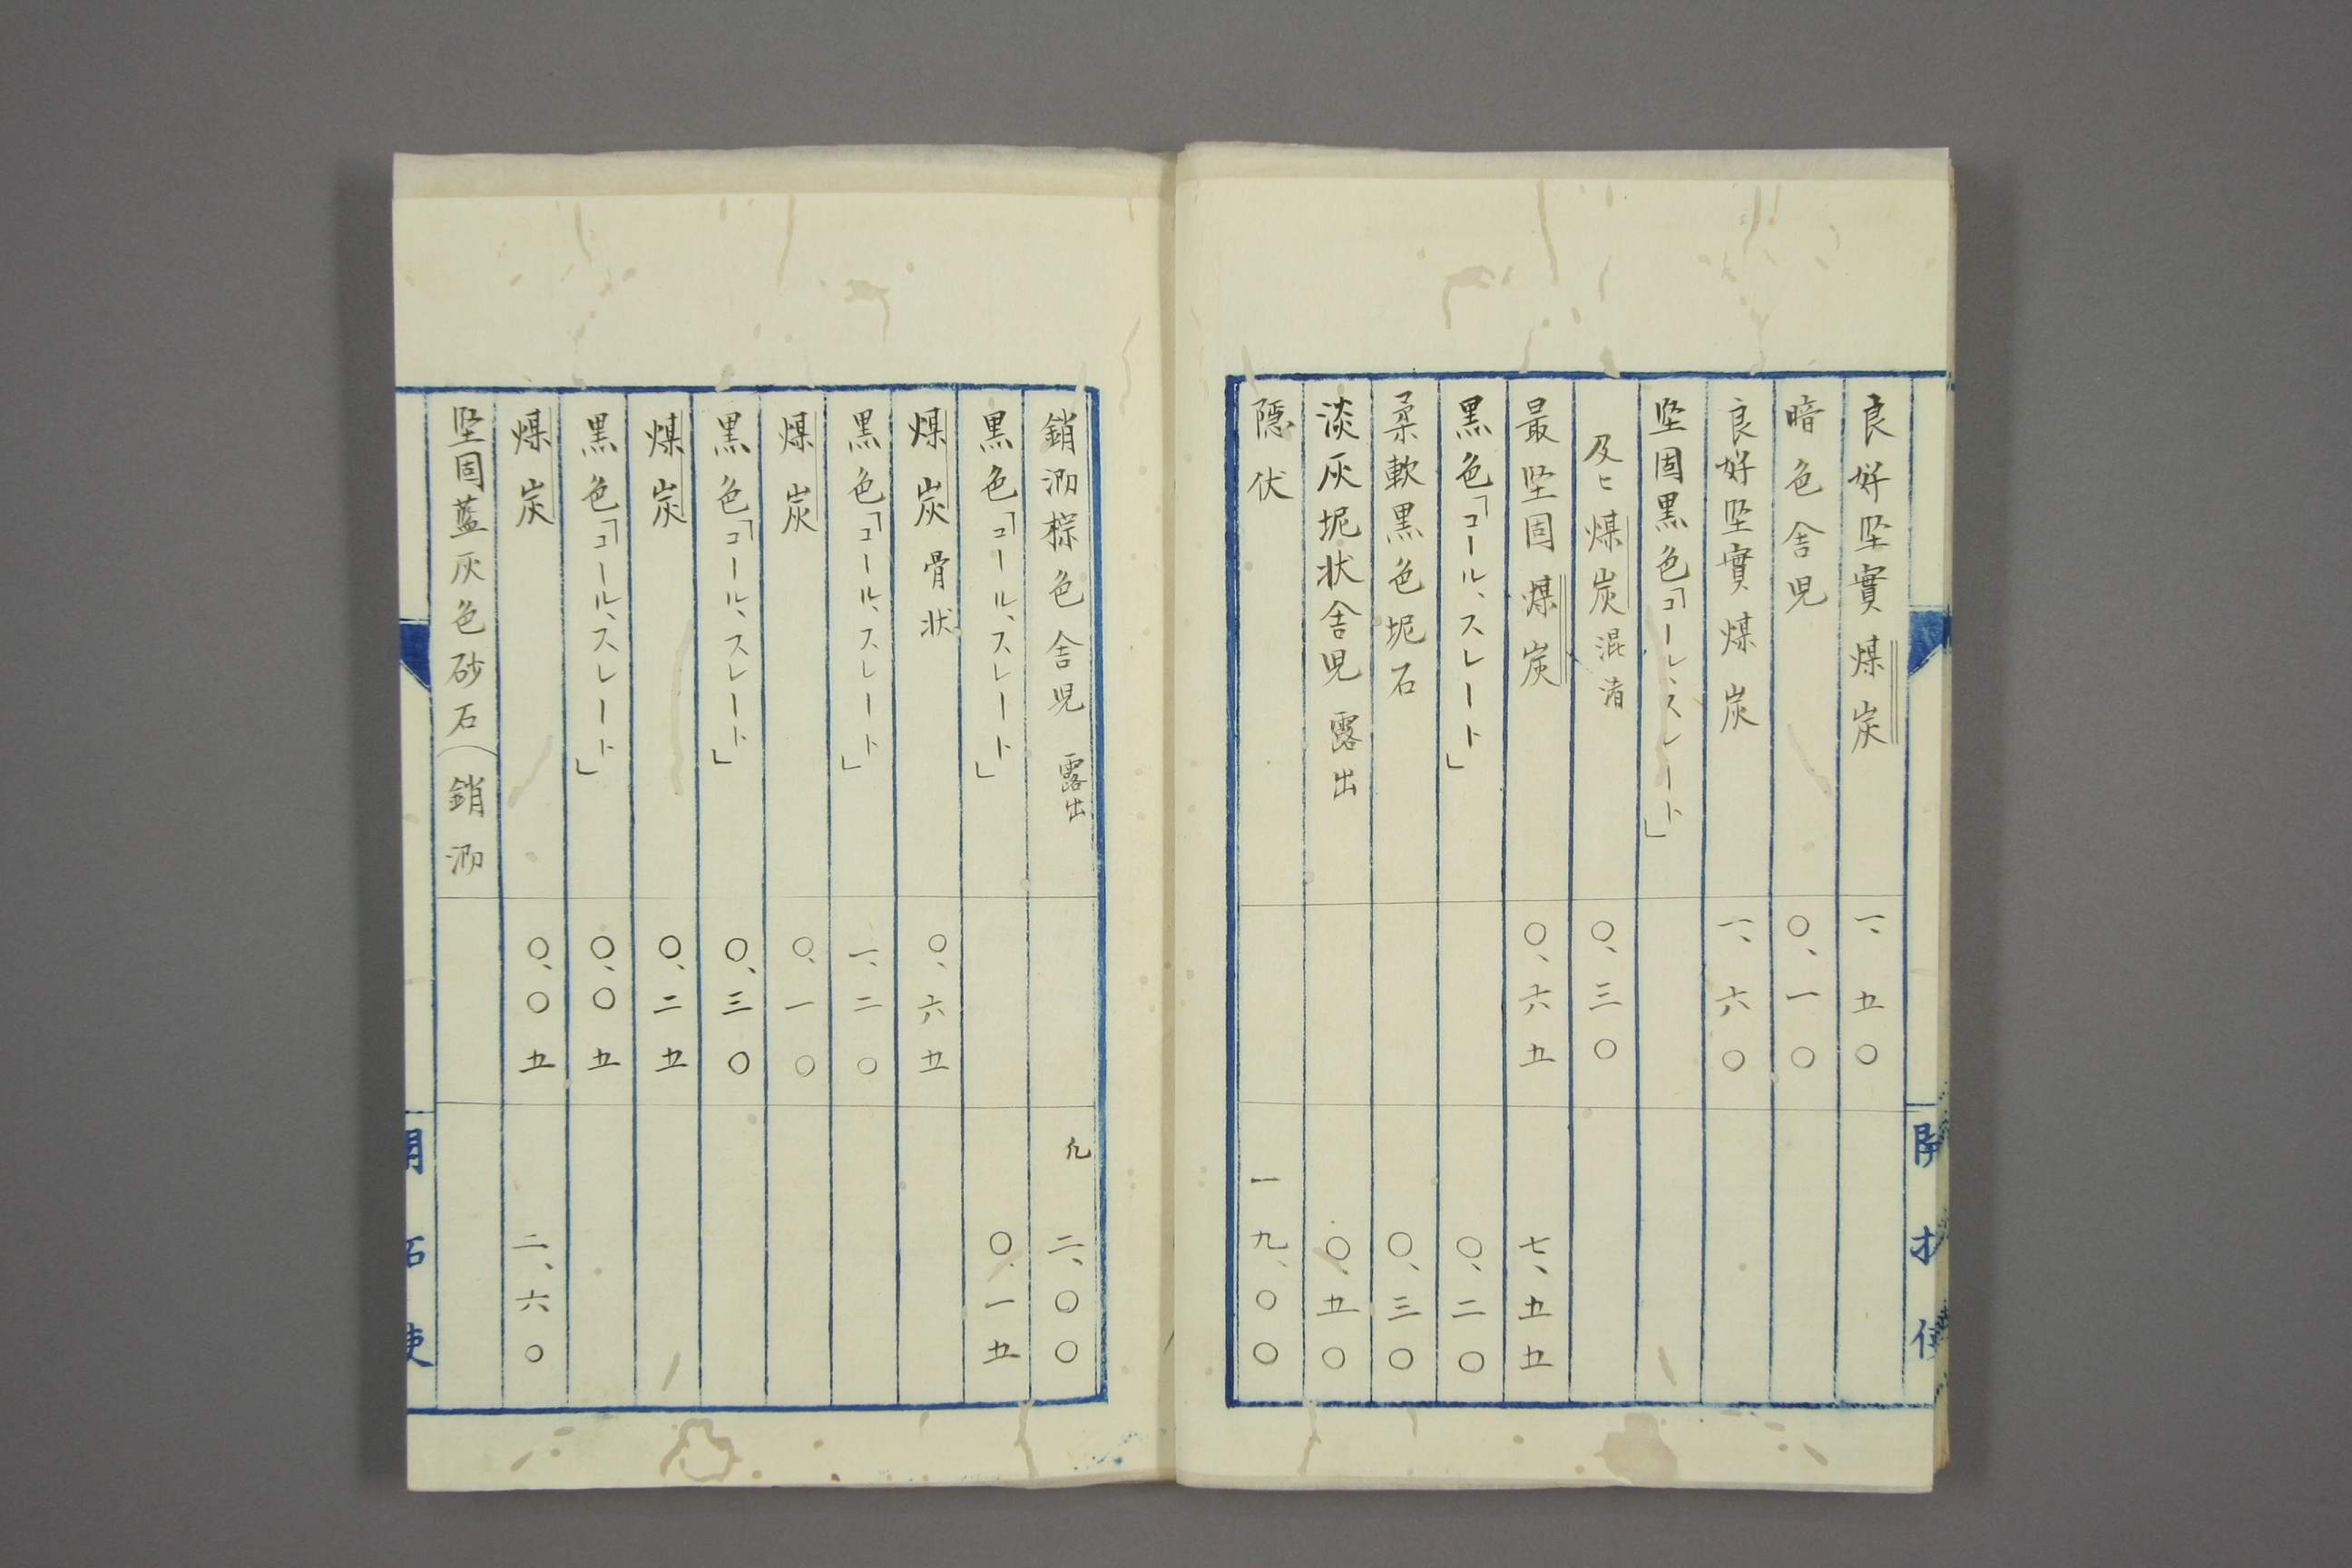 良好坚實煤炭 一、五〇
暗色舎児 〇、一〇
良好坚實煤炭 一、六〇
坚固黒色「コール、スレート」
及ヒ煤炭混淆 〇、三〇
最坚固煤炭 〇、六五 七、五五
黒色「コール、スレート」 〇、二〇
柔軟黒色坭石 〇、三〇
淡灰坭状舎児 露出 〇、五〇
隠伏 一九、〇〇
銷泐棕色舎児 露出 凢 二、〇〇
黒色「コール、スレート」 〇、一五
煤炭骨状 〇、六五
黒色「コール、スレート」 一、二〇
煤炭 〇、一〇
黒色「コール、スレート」 〇、三〇
煤炭 〇、二五
黒色「コール、スレート」 〇、〇五
煤炭 〇、〇五 二、六〇
坚固藍灰色砂石（銷泐